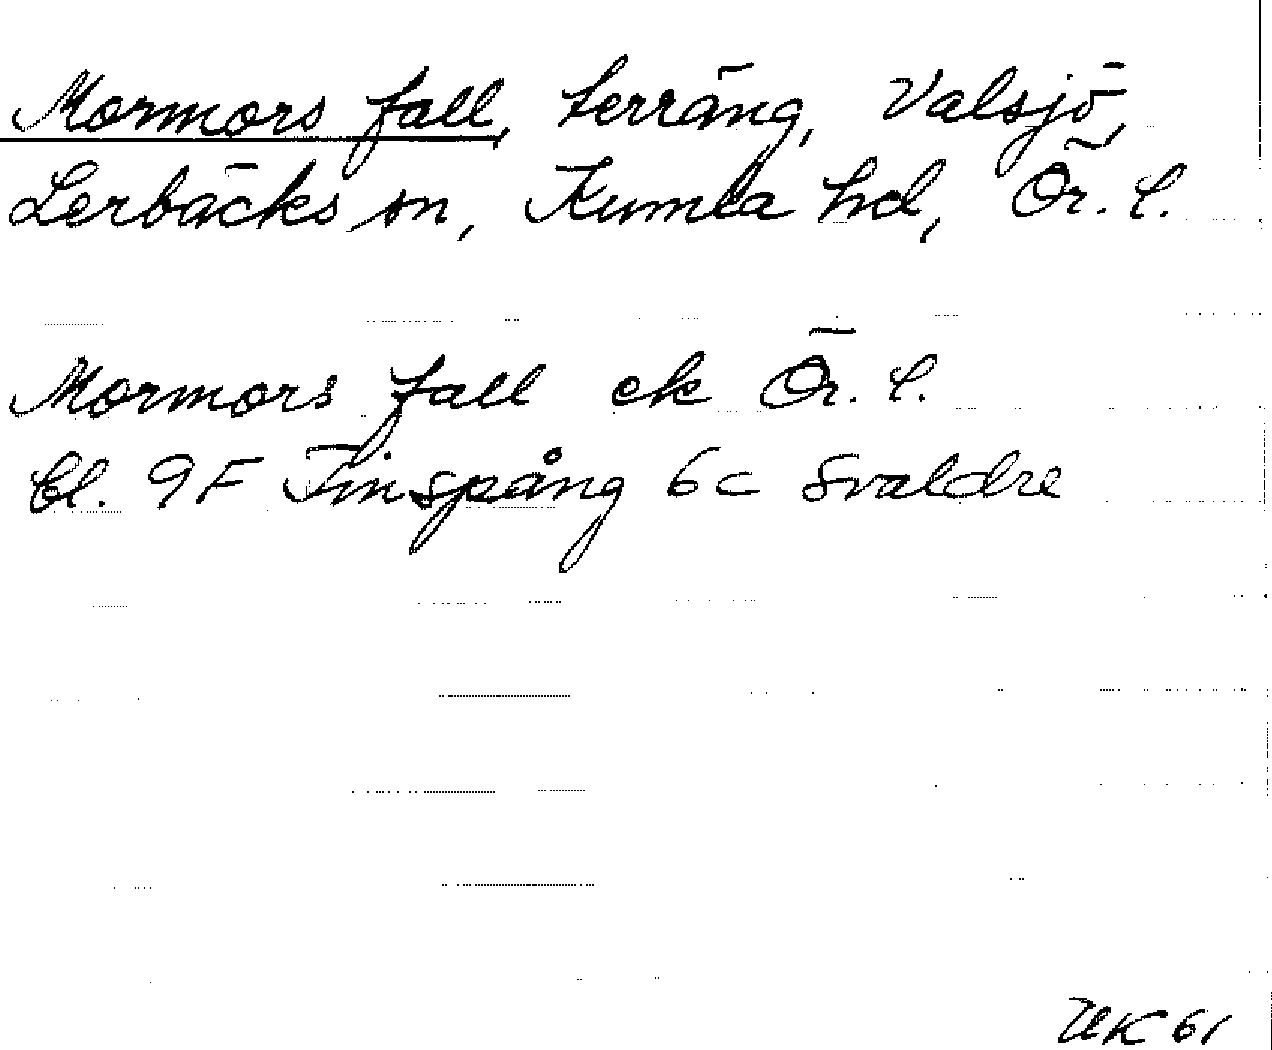 Mormors fall, terräng, Valsjö,
Lerbäcks sn, Kumla hd, Ör. l.
Mormors fall ek Ör. l.
Bl. 9F Finspång 6c Svaldre
UK 61